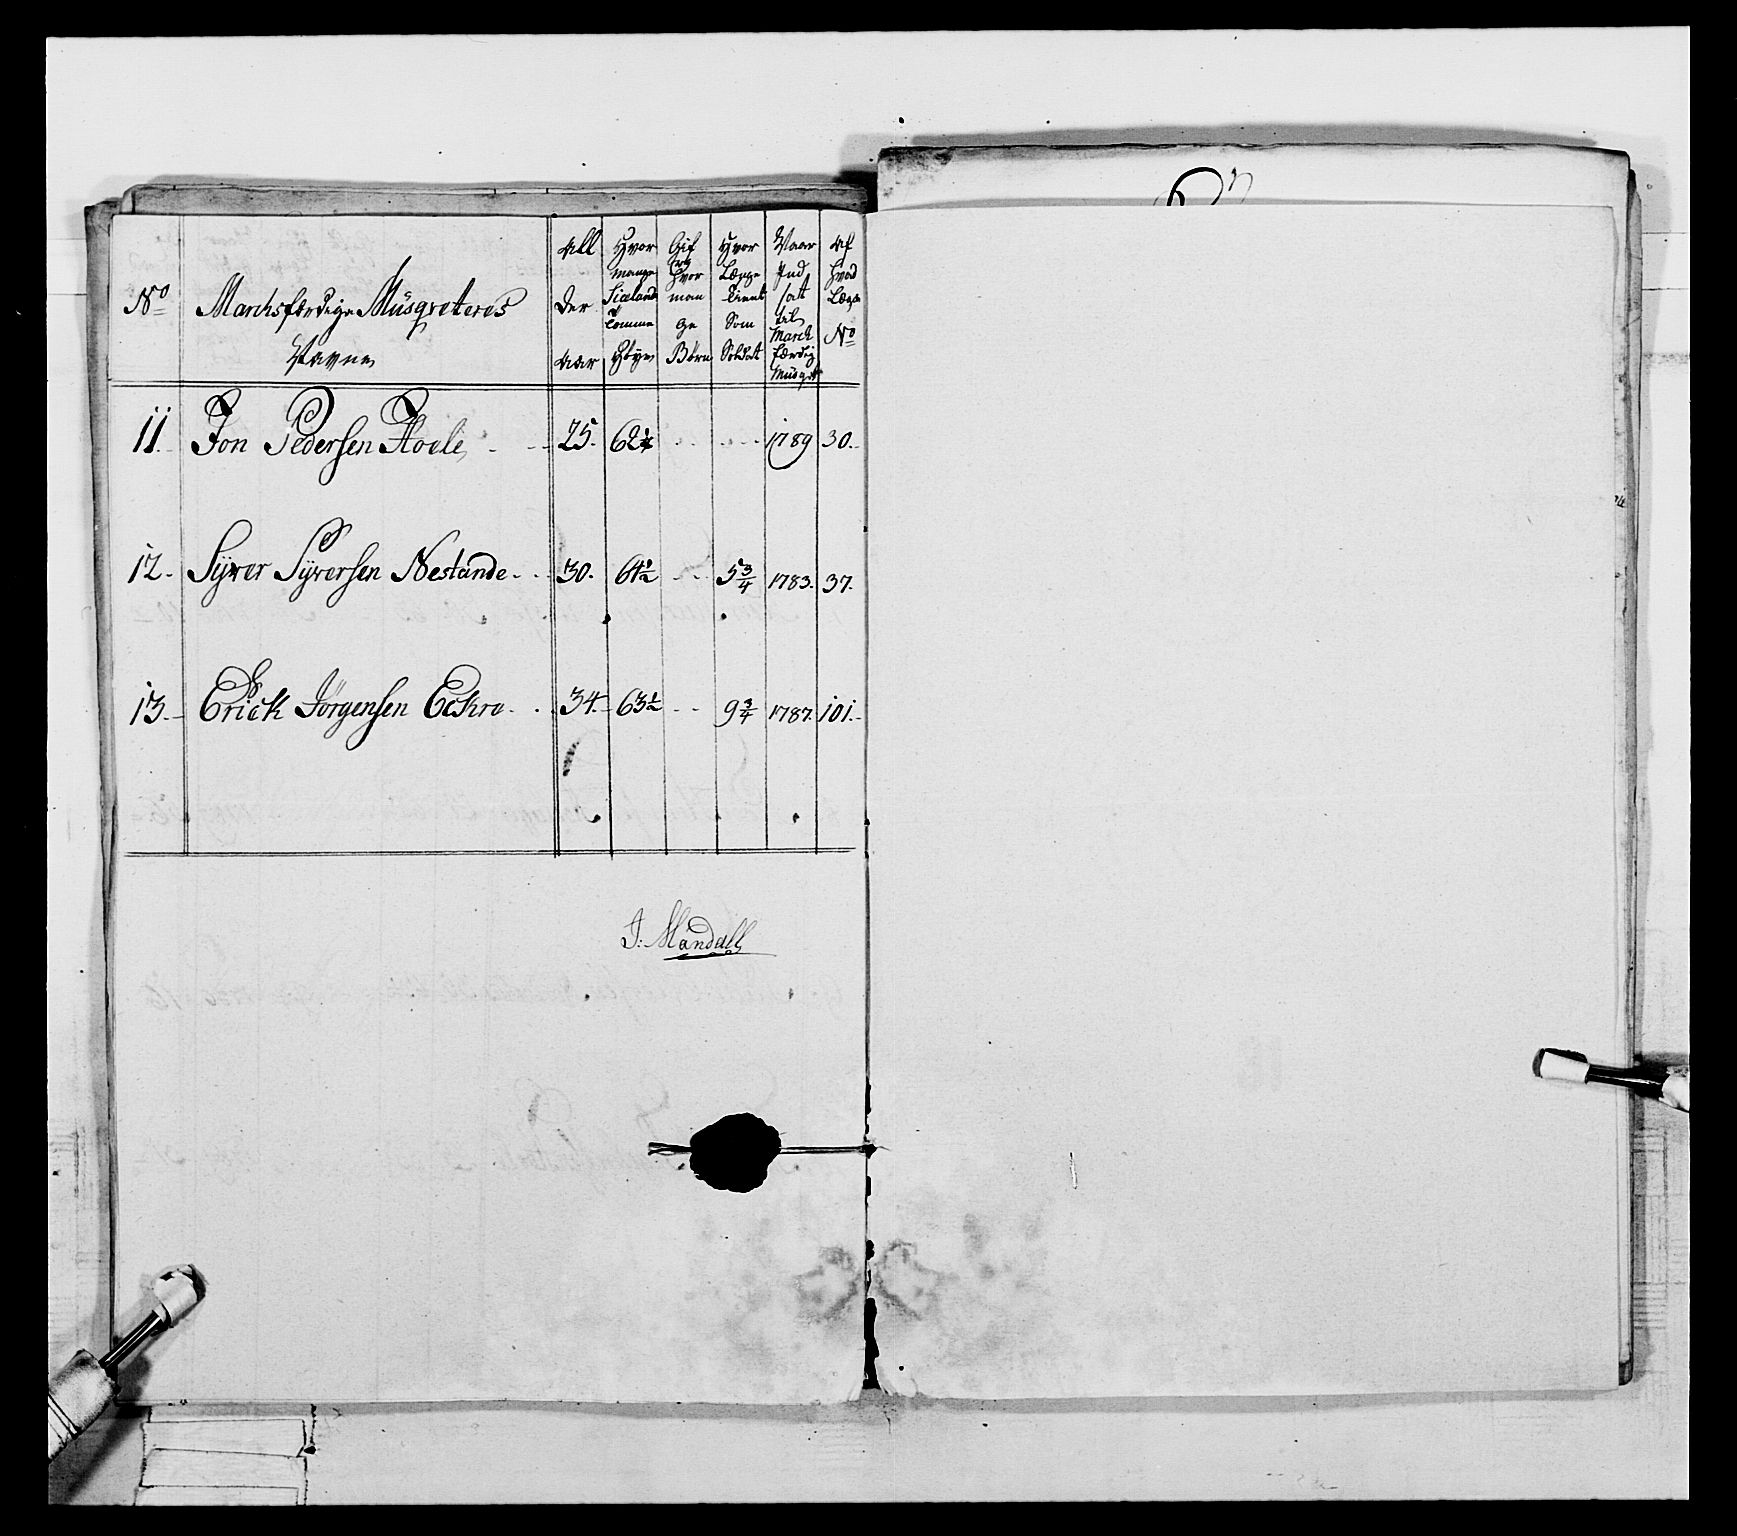 No
Marchsfærdige Müsqveteres
Navne
All
der
Aar
Hvor
mange
Siælands
Tomme
Høye
Gif
og
Hvor
man
ge
Børn
Hvor
Længe
tient
Som
Soldat
Naar
Ind
sat
til
March
færdig
Müsqvt
Af
Hvad
Lægn
No
11. Jon Pedersen Hoele 25. 62¼ 1789 30.
12. Syver Syversen Nestande 30. 64½ 5¾ 1783. 37.
13. Erick Jörgensen Eckro 34. 63½ 9¾ 1787. 101.
J: Mandall